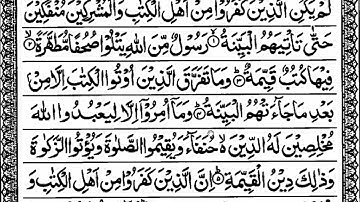 لَمْ يَكُنِ الَّذِيْنَ كَفَرُوْا مِنْ اَهْلِ الْكِتٰبِ وَالْمُشْرِكِيْنَ مُنْفَكِّيْنَ
حَتّٰى تَاْتِيَهُمُ الْبَيِّنَةُ ۙ۝۱ رَسُوْلٌ مِّنَ اللّٰهِ يَتْلُوْا صُحُفًا مُّطَهَّرَةً ۙ۝۲
فِيْهَا كُتُبٌ قَيِّمَةٌ ؕ۝۳ وَمَا تَفَرَّقَ الَّذِيْنَ اُوْتُوا الْكِتٰبَ اِلَّا مِنْۢ
بَعْدِ مَا جَآءَتْهُمُ الْبَيِّنَةُ ؕ۝۴ وَمَاۤ اُمِرُوْۤا اِلَّا لِيَعْبُدُوا اللّٰهَ
مُخْلِصِيْنَ لَهُ الدِّيْنَ ۙ۬ حُنَفَآءَ وَيُقِيْمُوا الصَّلٰوةَ وَيُؤْتُوا الزَّكٰوةَ
وَذٰلِكَ دِيْنُ الْقَيِّمَةِ ؕ۝۵ اِنَّ الَّذِيْنَ كَفَرُوْا مِنْ اَهْلِ الْكِتٰبِ وَ